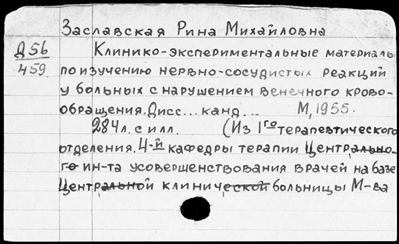 Заславская Рина Михайловна
Д56
459
Клинико-экспериментальные материалы
по изучению нервно-сосудистых реакций
у больных с нарушением венечного крово-
обращения. Дисс... канд... М, 1955.
284 л. с илл. (Из 1го терапевтического
отделения. 4-й кафедры терапии Центрально-
го ин-та усовершенствования врачей на базе
Центральной клинической больницы М-ва